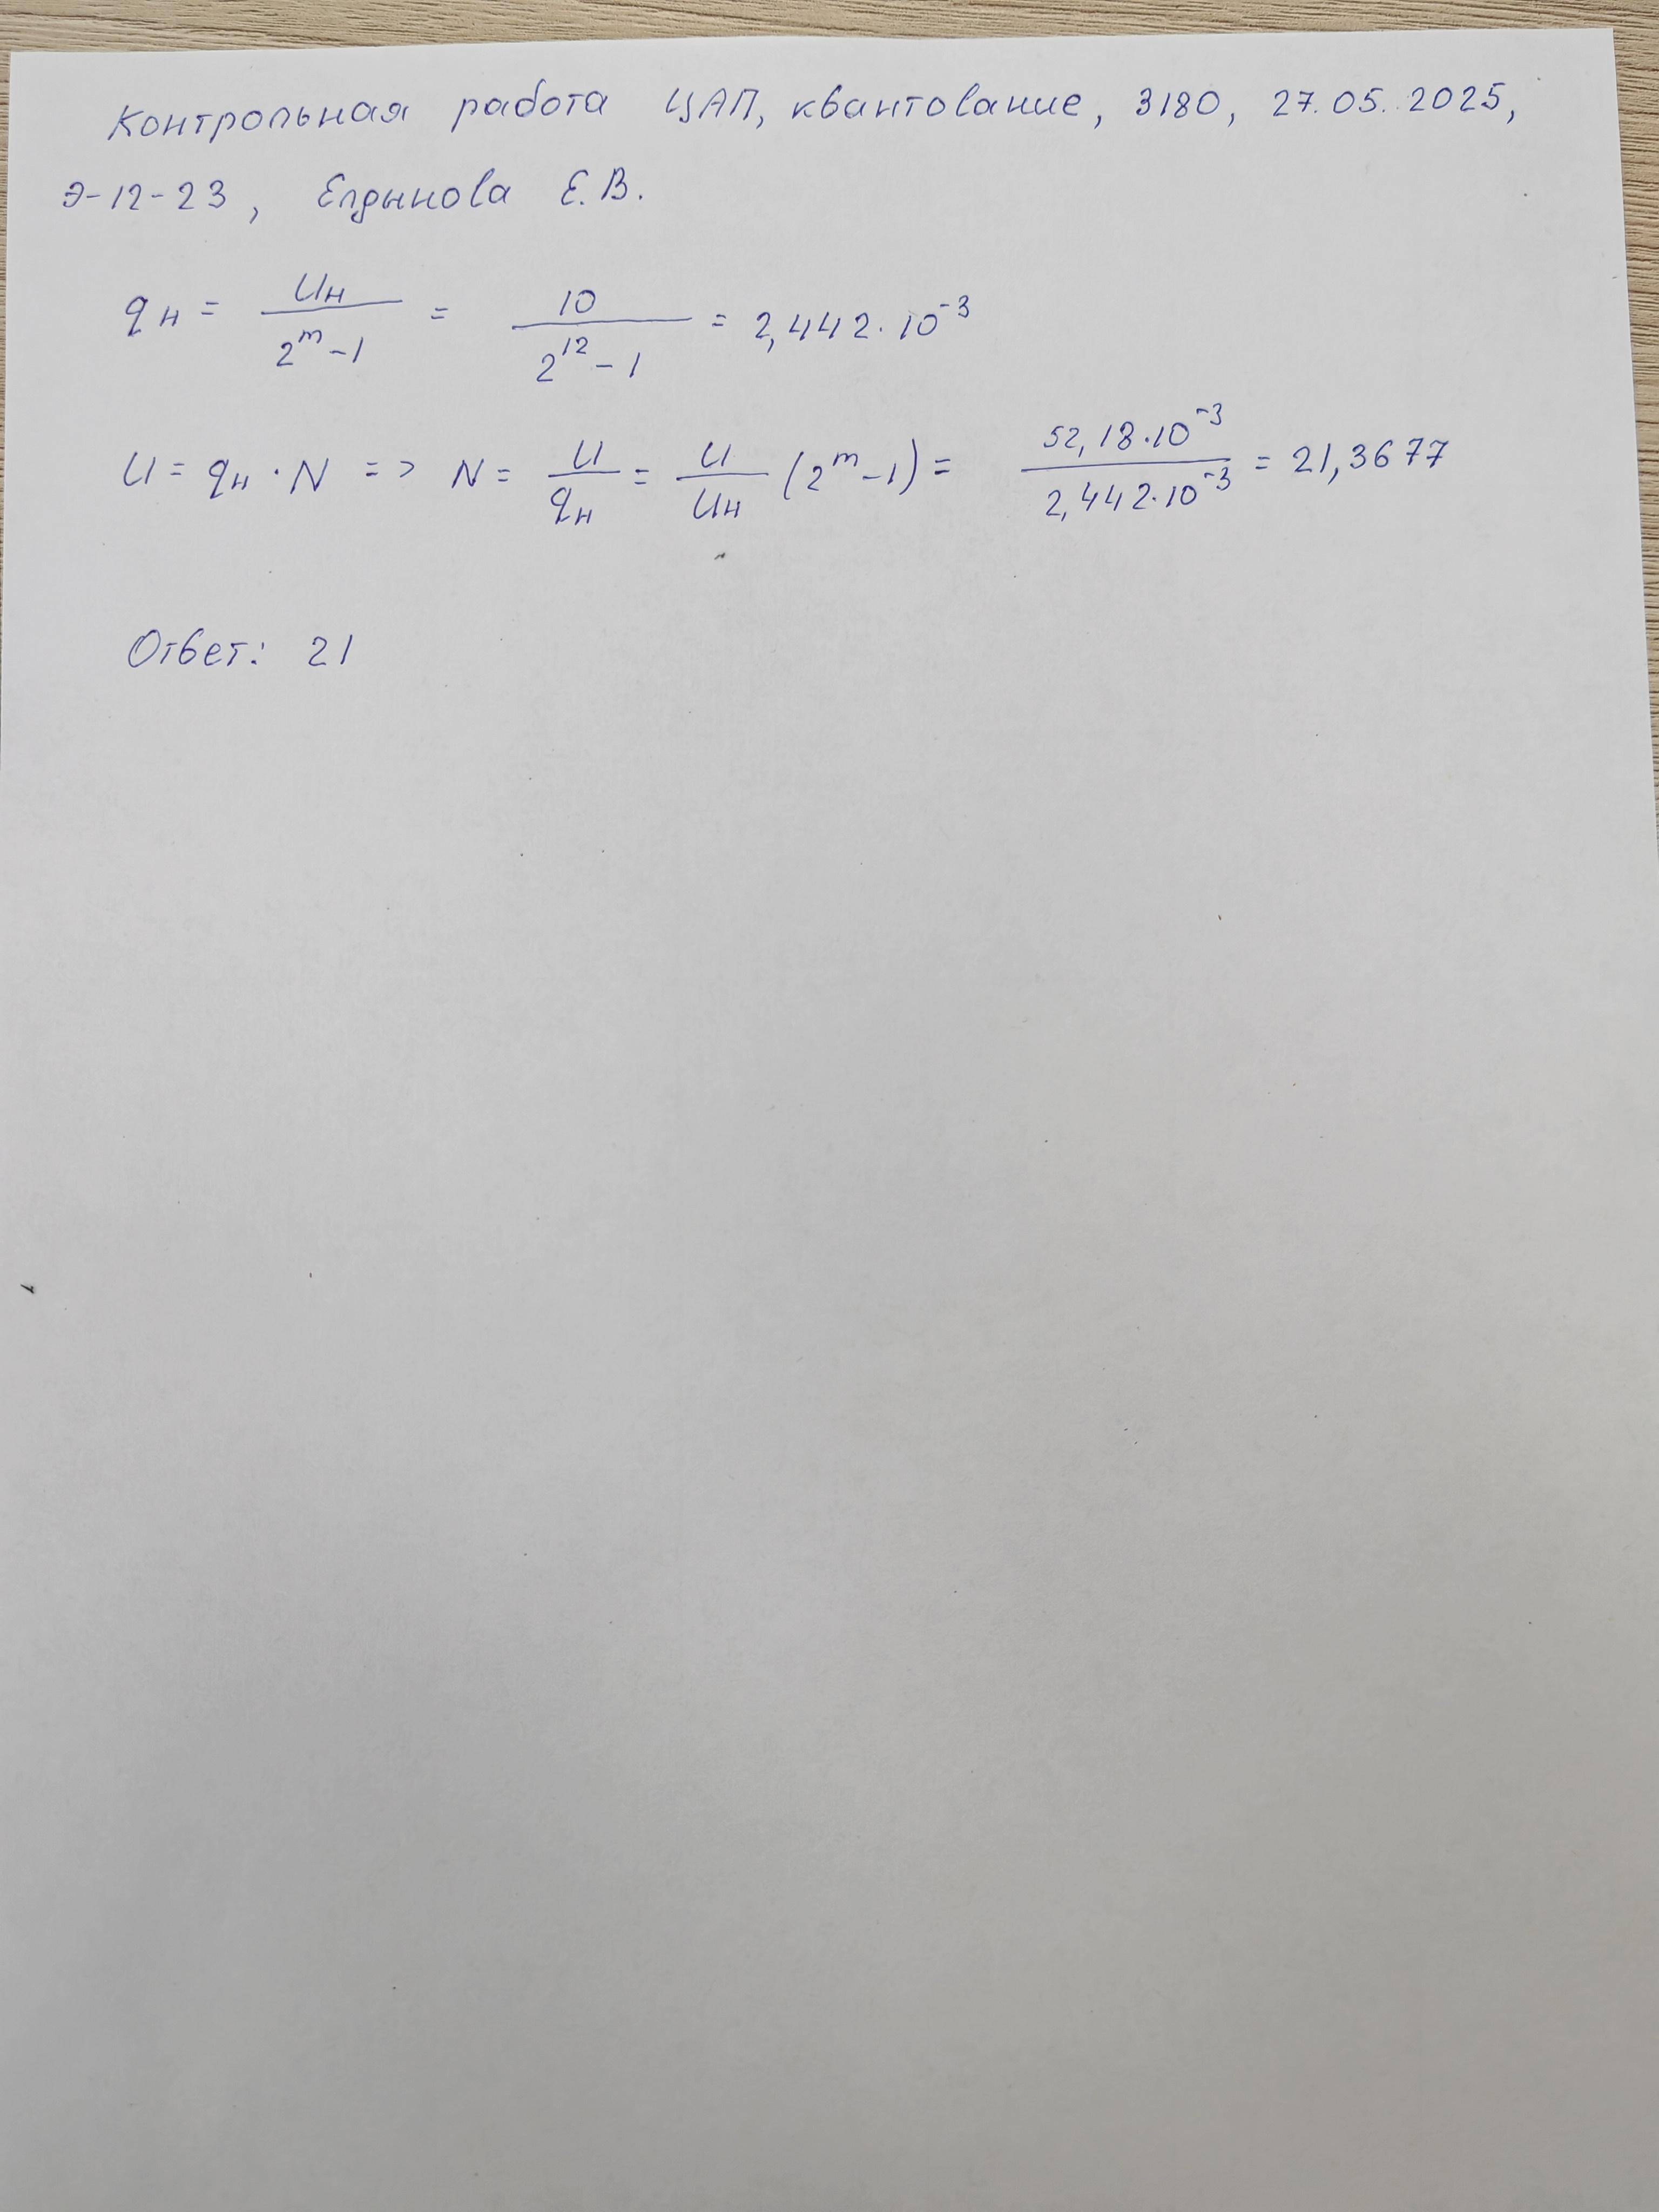 Контрольная работа ЦАП, квантование, 3180, 27.05.2025,
Э-12-23, Елдынова Е.В.
qн = Uн / (2^m - 1) = 10 / (2^12 - 1) = 2,442·10^-3
U = qн · N => N = U / qн = U / Uн (2^m - 1) = 52,18·10^-3 / 2,442·10^-3 = 21,3677
Ответ: 21